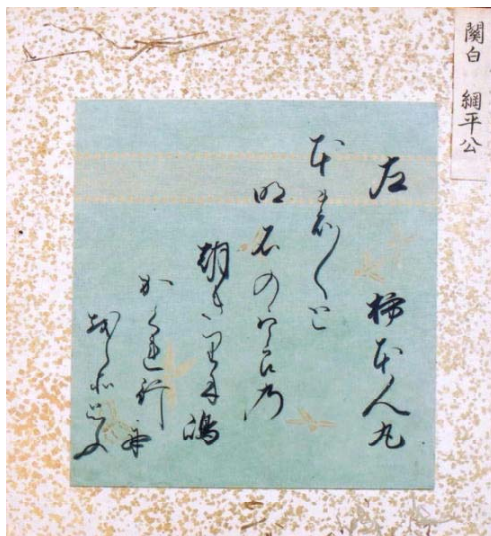 関白 綱平公
左 柿本人丸
ほの〳〵と
明石のうら乃
朝きりに嶋
かくれ行舟
をしそ思ふ